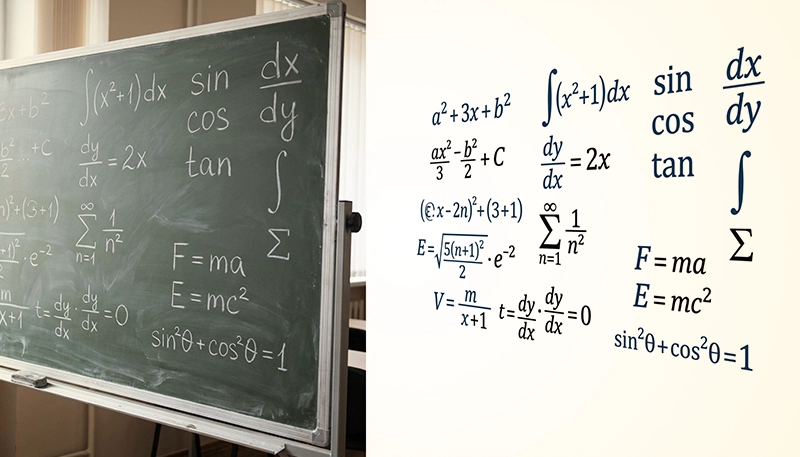 3x+b²
∫(x²+1)dx
sin
cos
tan
dx/dy
b²/2 ...+C
dy/dx = 2x
∫
n)²+(3+1)
∑ n=1 ∞ 1/n²
Σ
+1)²/2 · e⁻²
F = ma
E = mc²
m/x+1
t = dy/dx · dy/dx = 0
sin²θ + cos²θ = 1
a²+3x+b²
∫(x²+1)dx
sin
cos
tan
dx/dy
ax²/3 - b²/2 + C
dy/dx = 2x
∫
x-2n)²+(3+1)
∑ n=1 ∞ 1/n²
Σ
E=√5(n+1)²/2 · e⁻²
F = ma
E = mc²
V = m/x+1
t = dy/dx · dy/dx = 0
sin²θ+cos²θ=1